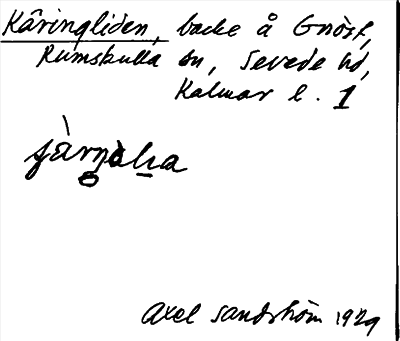 Käringliden, backe å Gnöst,
Rumskulla sn, Sevede hd,
Kalmar l. 1
Axel Sandström 1929